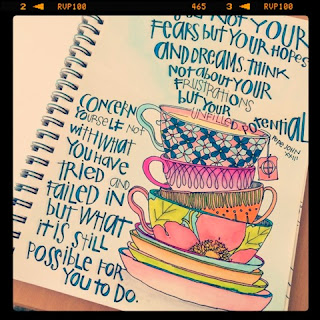 2 RVP100 465 3 RVP100
NOT YOUR
FEARS BUT YOUR HOPES
AND DREAMS. THINK
NOT ABOUT YOUR
FRUSTRATIONS
BUT YOUR
UNFILLED POTENTIAL
POPE JOHN
XXIII
CONCERN
YOURSELF NOT
WITH WHAT
YOU HAVE
TRIED AND
FAILED IN
BUT WHAT
IT IS STILL
POSSIBLE FOR
YOU TO DO.